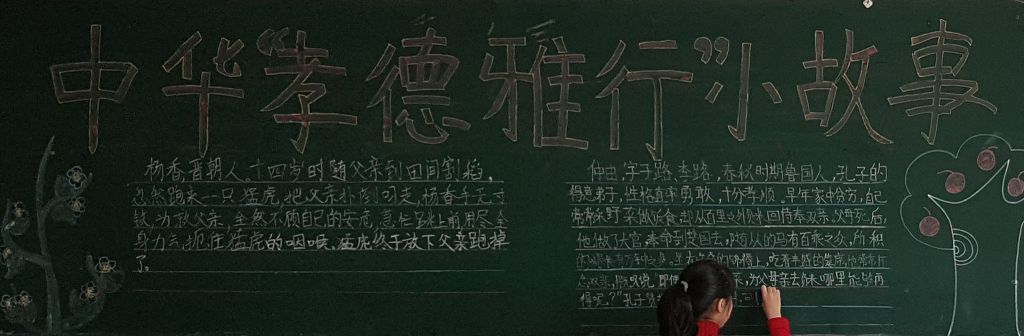 中华“孝德雅行”小故事
杨香,晋朝人,十四岁时随父亲到田间割稻,
忽然跑来一只猛虎,把父亲扑倒叼走,杨香手无寸
铁,为救父亲,全然不顾自己的安危,急忙跳上前,用尽全
身力气抓住猛虎的咽喉,猛虎终于放下父亲跑掉
了。
仲由,字子路、季路,春秋时期鲁国人,孔子的
得意弟子,性格直率勇敢,十分孝顺。早年家中贫穷,自己
常常采野菜做饭食,却从百里之外负米回家侍奉双亲。父母死后,
他做了大官,奉命到楚国去,随从的马车有百乘之众,所积
坐在垒叠的锦褥上,吃着丰盛的筵席,他常常怀
念双亲,慨叹说:即使 为父母亲去负米,哪里能够再
得呢?”孔子